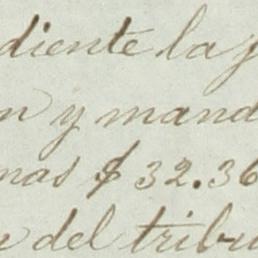 diente la j
n y mand
mas $ 32.36
del tribu